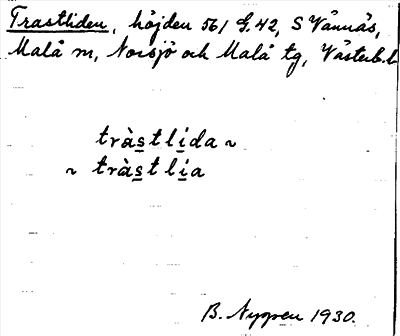 Trastliden, höjden 561 G.42, S Vännäs,
Malå m, Norsjö och Malå tg, Västerb.l.
tràstlida ~
~ tràstlia
B. Nygren 1930.